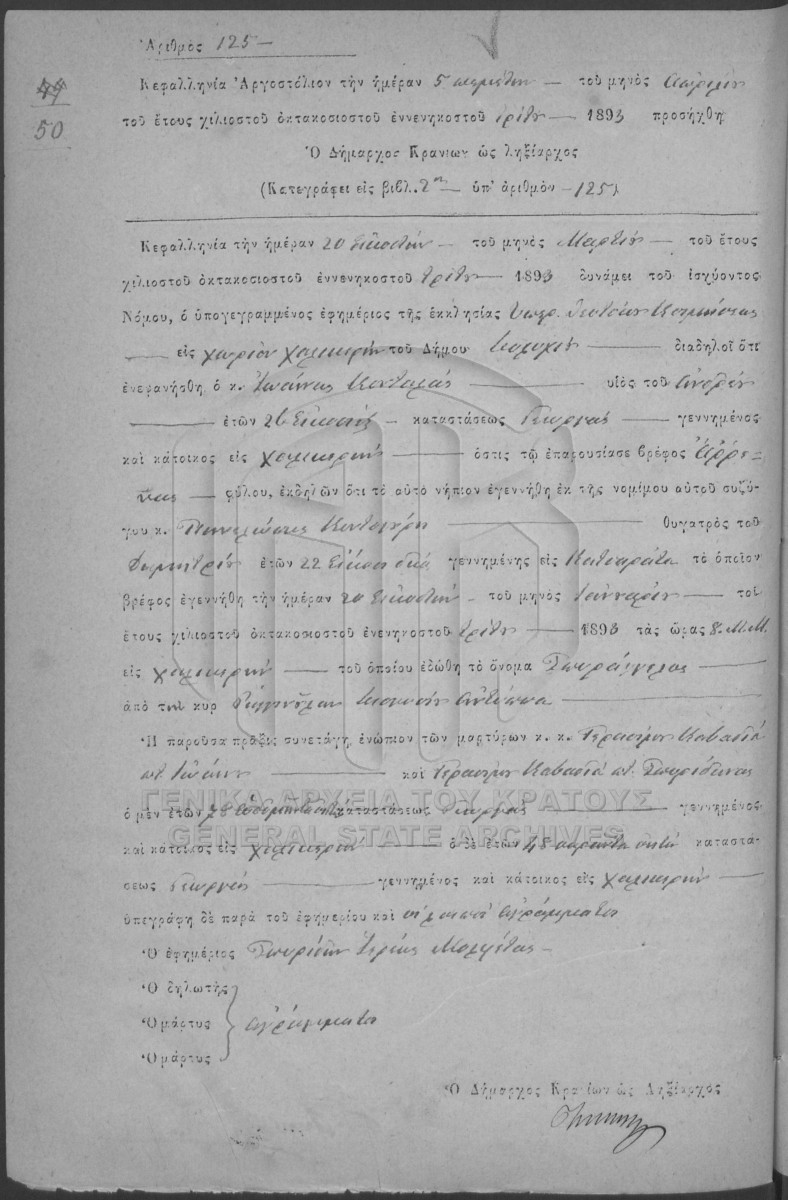 Ἀριθμὸς 125 —
49
50
Κεφαλληνία Ἀργοστόλιον τὴν ἡμέραν 5 πέμπτην — τοῦ μηνὸς Ἀπριλίου
τοῦ ἔτους χιλιοστοῦ ὀκτακοσιοστοῦ ἐννενηκοστοῦ τρίτου — 1893 προσήχθη
Ὁ Δήμαρχος Κρανίων ὡς ληξίαρχος
(Κατεγράφει εἰς βιβλ. 2ον — ὑπ' ἀριθμὸν — 125)
Κεφαλληνία τὴν ἡμέραν 20 Εἰκοστήν — τοῦ μηνὸς Μαρτίου — τοῦ ἔτους
χιλιοστοῦ ὀκτακοσιοστοῦ ἐννενηκοστοῦ τρίτου — 1893 δυνάμει τοῦ ἰσχύοντος
Νόμου, ὁ ὑπογεγραμμένος ἐφημέριος τῆς ἐκκλησίας Ὑπερ. Θεοτόκου Κοιμήσεως
— εἰς χωρίον τοῦ Δήμου — διαδηλοῖ ὅτι
ἐνεφανήσθη ὁ κ. Ἰωάννης — υἱὸς τοῦ Ἀνδρέου
— ἐτῶν 26 Εἴκοσι ἕξ — καταστάσεως Γεωργός — γεννημένος
καὶ κάτοικος εἰς — ὅστις τῷ ἐπαρουσίασε βρέφος Ἄῤῥε-
νος — φύλου, ἐκδηλῶν ὅτι τὸ αὐτὸ νήπιον ἐγεννήθη ἐκ τῆς νομίμου αὐτοῦ συζύ-
γου κ. Πηνελώπης — θυγατρὸς τοῦ
Δημητρίου ἐτῶν 22 Εἴκοσι δύο γεννημένης εἰς Κατσαράτα τὸ ὁποῖον
βρέφος ἐγεννήθη τὴν ἡμέραν 20 Εἰκοστήν — τοῦ μηνὸς Ἰαννουαρίου — τοῦ
ἔτους χιλιοστοῦ ὀκτακοσιοστοῦ ἐνενηνοστοῦ τρίτου — 1893 τὰς ὥρας 8 Μ.Μ.
εἰς — τοῦ ὁποίου ἐδώθη τὸ ὄνομα Σπυράγγελος —
ἀπὸ τὴν κυρ —
Ἡ παροῦσα πρᾶξις συνετάγη ἐνώπιον τῶν μαρτύρων κ. κ. Γερασίμου Καβαδία
ποτ. Ἰωάννου — καὶ Γερασίμου Καβαδία ποτ. Σπυρίδωνος
ὁ μὲν ἐτῶν καταστάσεως Γεωργός — γεννημένος
καὶ κάτοικος εἰς — ὁ δὲ ἐτῶν 48 σαράντα ὀκτώ καταστά-
σεως Γεωργός — γεννημένος καὶ κάτοικος εἰς —
ὑπεγράφη δὲ παρὰ τοῦ ἐφημερίου καὶ οἱ λοιποί ἀγράμματοι
Ὁ ἐφημέριος Σπυρίδων Ἱερεύς —
Ὁ δηλωτὴς
Ὁ μάρτυς ἀγράμματοι
Ὁ μάρτυς
Ὁ Δήμαρχος Κρανίων ὡς Ληξίαρχος
ΓΕΝΙΚΑ ΑΡΧΕΙΑ ΤΟΥ ΚΡΑΤΟΥΣ
GENERAL STATE ARCHIVES